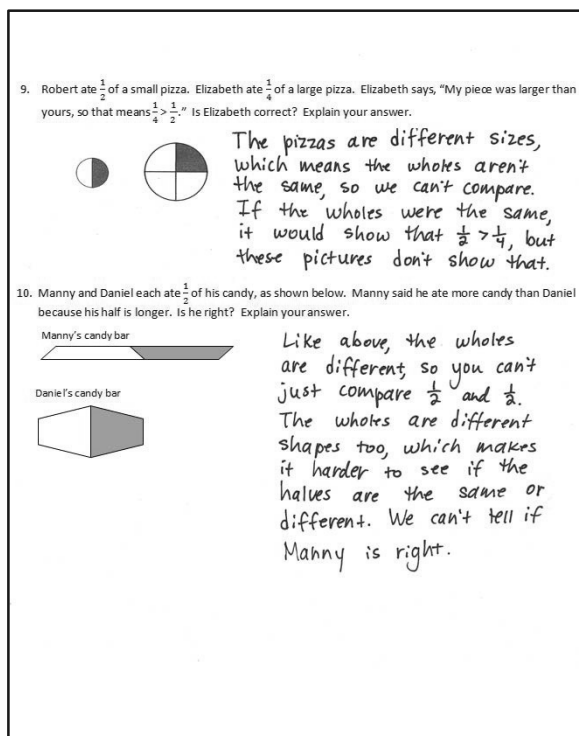 9. Robert ate 1/2 of a small pizza. Elizabeth ate 1/4 of a large pizza. Elizabeth says, “My piece was larger than
yours, so that means 1/4 > 1/2.” Is Elizabeth correct? Explain your answer.
The pizzas are different sizes,
which means the wholes aren't
the same, so we can't compare.
If the wholes were the same,
it would show that 1/2 > 1/4, but
these pictures don't show that.
10. Manny and Daniel each ate 1/2 of his candy, as shown below. Manny said he ate more candy than Daniel
because his half is longer. Is he right? Explain your answer.
Manny's candy bar
Daniel's candy bar
Like above, the wholes
are different, so you can't
just compare 1/2 and 1/2.
The wholes are different
shapes too, which makes
it harder to see if the
halves are the same or
different. We can't tell if
Manny is right.